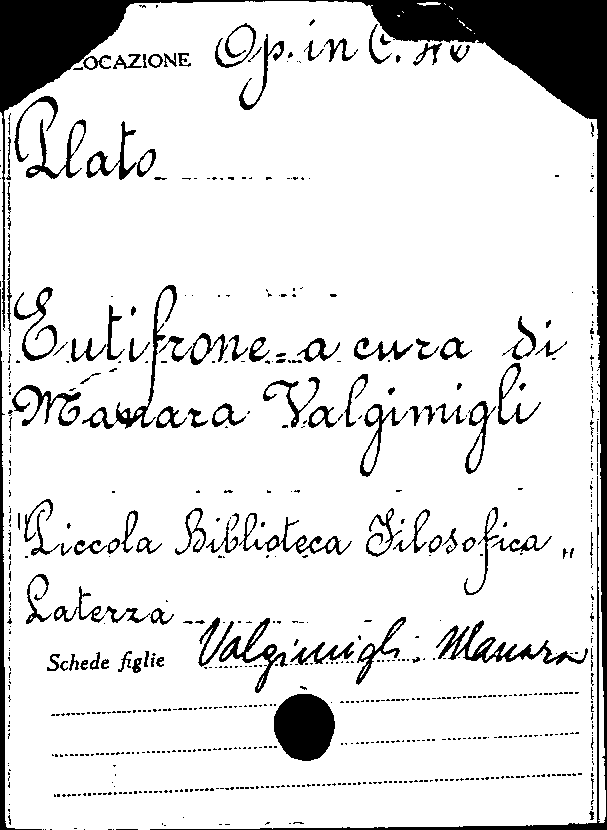 LOCAZIONE Op. in C. 46
Plato
Eutifrone = a cura di
Manara Valgimigli
"Piccola Biblioteca Filosofica"
Laterza
Schede figlie Valgimigli. Manara